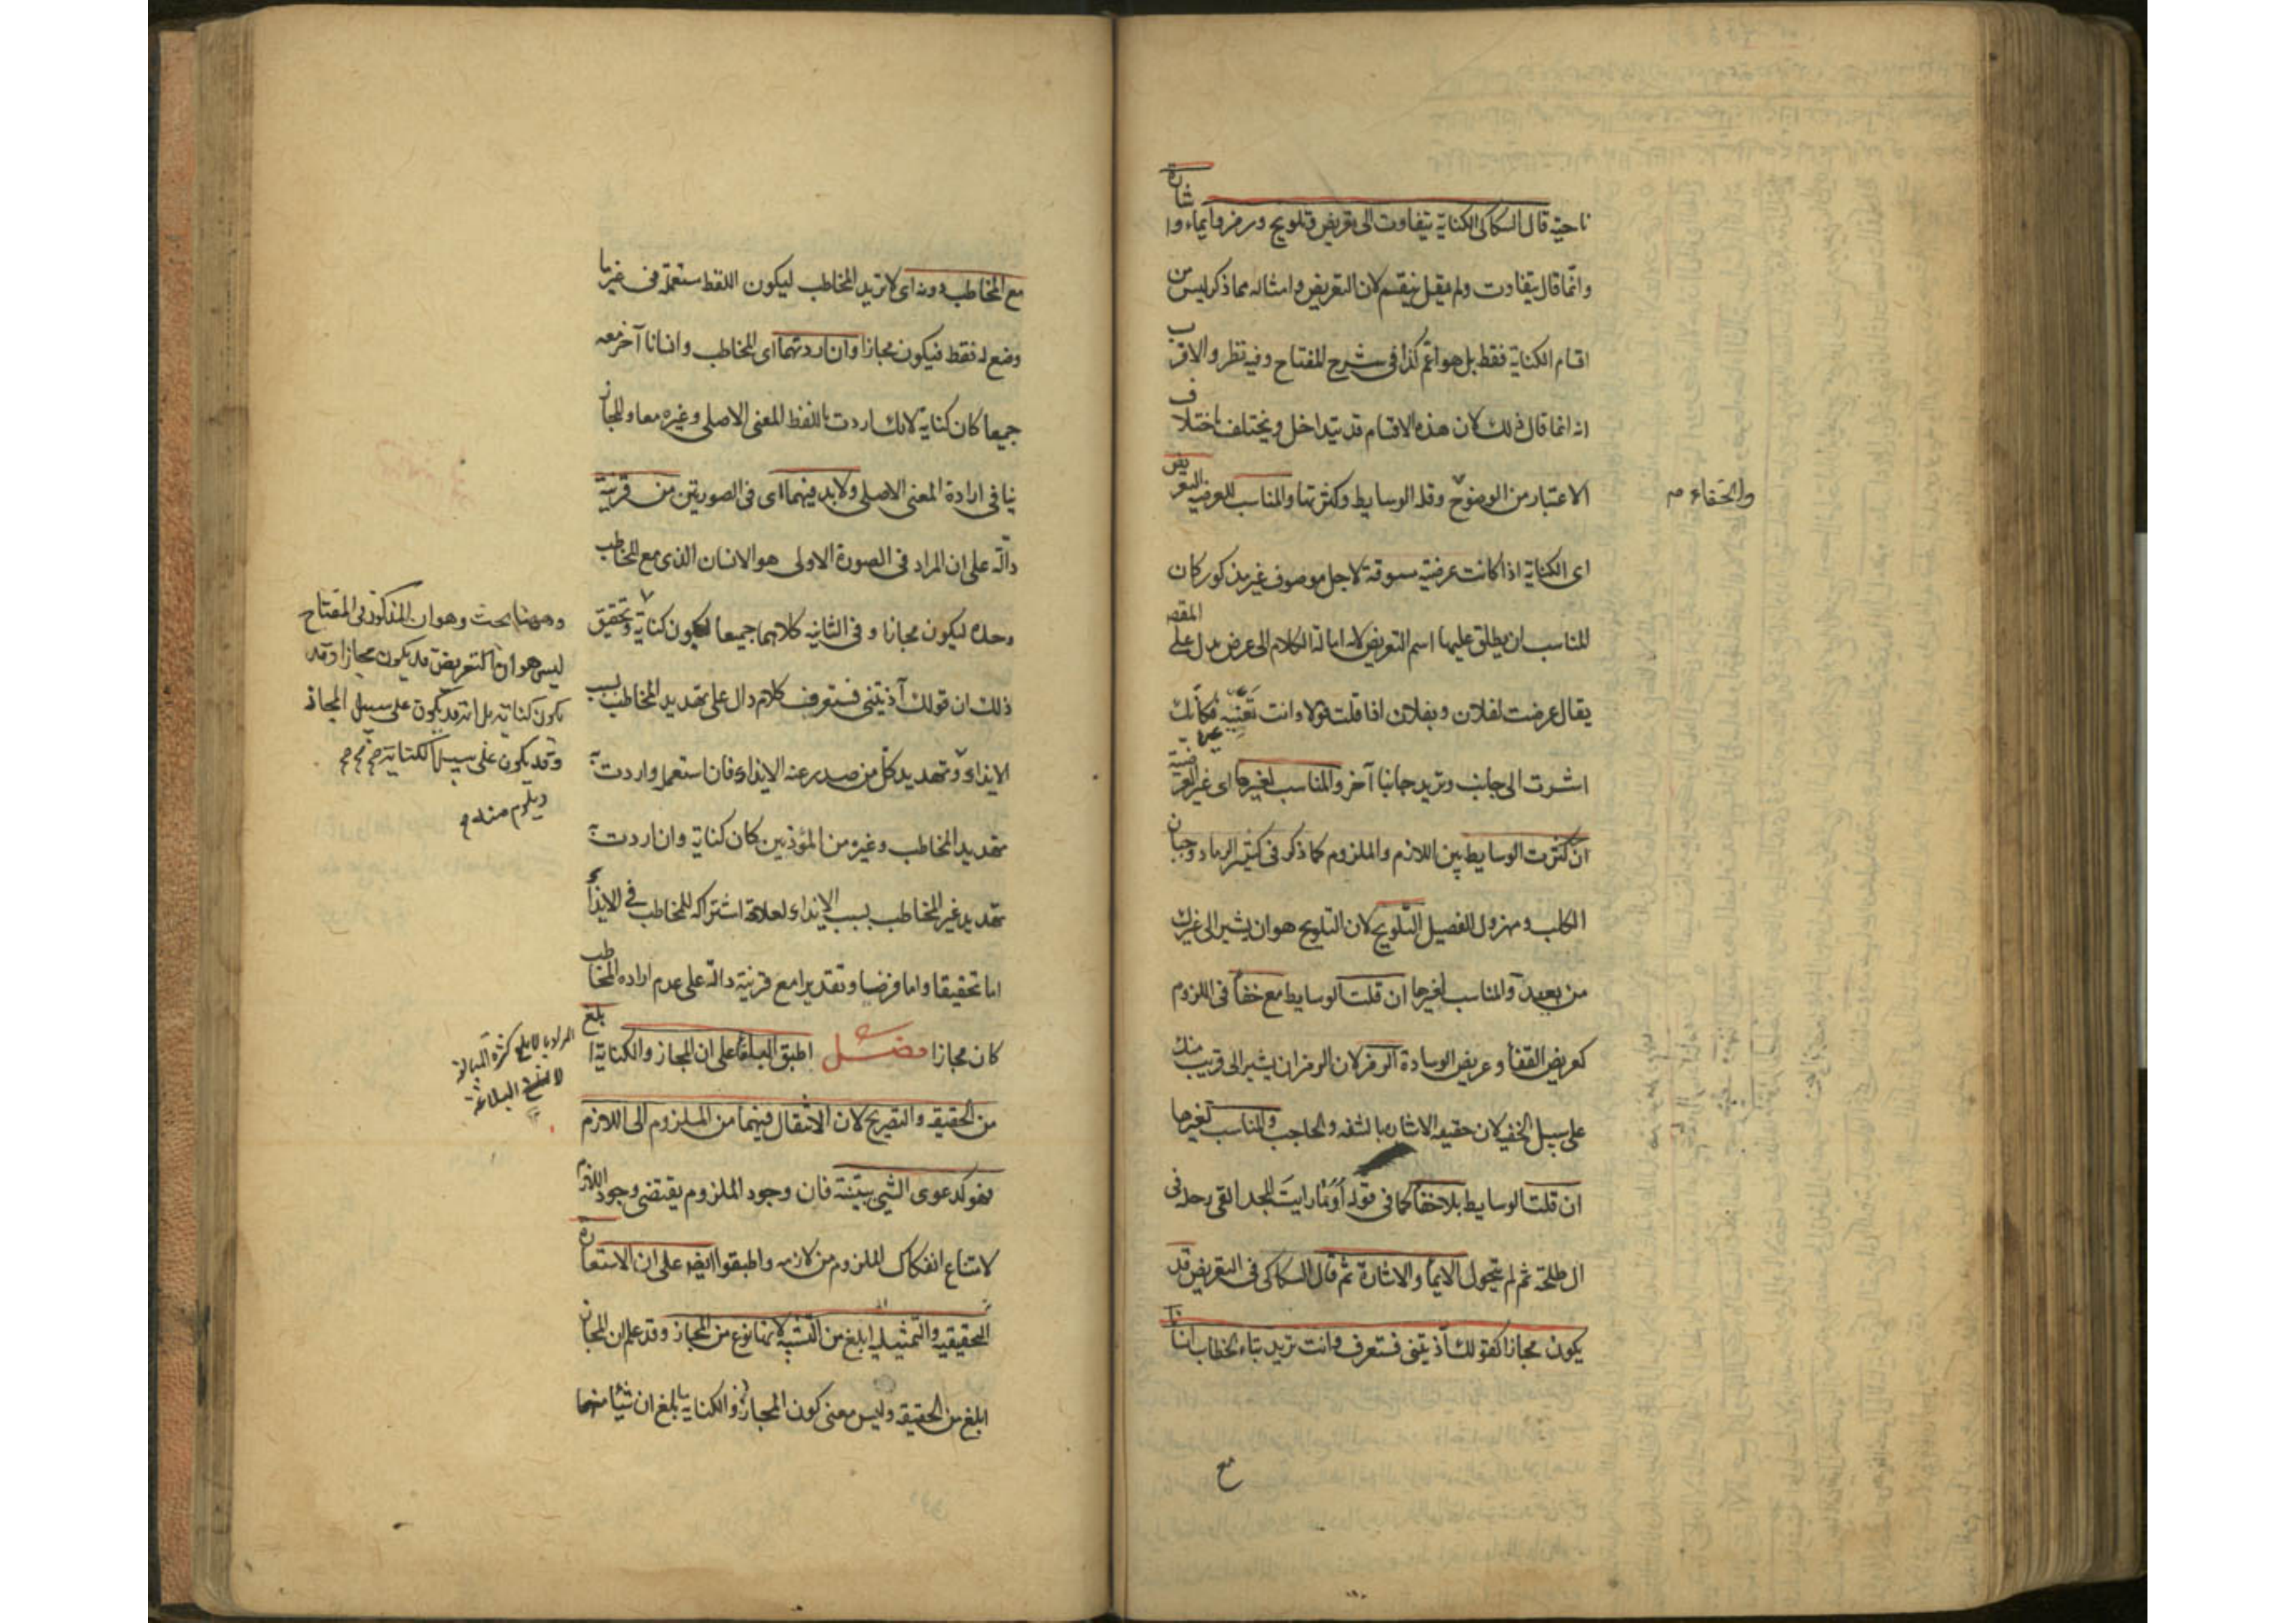 ناحية قال السكاكى الكناية يتفاوت الى تعريض وتلويح ورمز وايماء واشارة
وانما قال يتفاوت ولم يقل ينقسم لان التعريض وامثاله مما ذكر ليس من
اقسام الكناية فقط بل هو اعم كذا فى شرح المفتاح وفيه نظر والاقرب
انه انما قال ذلك لان هذه الاقسام قد يتداخل ويختلف باختلاف
الاعتبار من الوضوح وقلة الوسايط وكثرتها والمناسب للعرضية التعريض
والخفاء
اى الكناية اذا كانت عرضية مسوقة لاجل موصوف غير مذكور كان
المناسب ان يطلق عليها اسم التعريض لانه امالة الكلام الى عرض يدل على المقصود
يقال عرضت لفلان وبفلان اذا قلت قولا وانت تعنيه فكانك
اشرت الى جانب وتريد جانبا آخر والمناسب لغيرها اى غير العرضية
ان كثرت الوسايط بين اللازم والملزوم كما ذكر فى كثير الرماد وجبان
الكلب ومهزول الفصيل التلويح لان التلويح هو ان يشير الى غيرك
من بعيد والمناسب لغيرها ان قلت الوسايط مع خفاء فى اللزوم
كعريض القفا وعريض الوسادة الرمز لان الرمز ان يشير الى قريب منك
على سبيل الخفية لان حقيقة الاشارة بالشفة والحاجب والمناسب لغيرها
ان قلت الوسايط بلا خفاء كما فى قوله اوما رايت المجد القى رحله فى
ال طلحة ثم لم يتحول الايماء والاشارة ثم قال السكاكى فى التعريض قد
يكون مجازا كقولك آذيتنى فستعرف وانت تريد بتاء الخطاب انسانا
مع
مع المخاطب دونه اى لا تريد المخاطب ليكون اللفظ مستعملا فى غير ما
وضع له فقط فيكون مجازا وان اردتهما اى المخاطب وانسانا آخر معه
جميعا كان كناية لانك اردت باللفظ المعنى الاصلى وغيره معا والمجاز
ينافى ارادة المعنى الاصلى ولا بد فيهما اى فى الصورتين من قرينة
دالة على ان المراد فى الصورة الاولى هو الانسان الذى مع المخاطب
وحده ليكون مجازا وفى الثانية كلاهما جميعا ليكون كناية وتحقيق
ذلك ان قولك آذيتنى فستعرف كلام دال على تهديد المخاطب بسبب
الايذاء وتهديد كل من صدر عنه الايذاء فان استعملته واردت به
تهديد المخاطب وغيره من المؤذيين كان كناية وان اردت به
تهديد غير المخاطب بسبب الايذاء لعلاقة اشتراكه للمخاطب فى الايذاء
اما تحقيقا واما فرضا وتقديرا مع قرينة دالة على عدم ارادة المخاطب
كان مجازا فصل اطبق البلغاء على ان المجاز والكناية ابلغ
من الحقيقة والتصريح لان الانتقال فيهما من الملزوم الى اللازم
فهو كدعوى الشئ ببينة فان وجود الملزوم يقتضى وجود اللازم
لامتناع انفكاك الملزوم من لازمه واطبقوا ايضا على ان الاستعارة
التحقيقية والتمثيلية ابلغ من التشبيه لانها نوع من المجاز وقد علم ان المجاز
ابلغ من الحقيقة وليس معنى كون المجاز والكناية ابلغ ان شيئا منهما
وههنا بحث وهو ان المذكور فى المفتاح
ليس هو ان التعريض قد يكون مجازا وقد
يكون كناية بل انه قد يكون على سبيل المجاز
وقد يكون على سبيل الكناية
المراد بالابلغ كثرة المبالغة
البلاغة